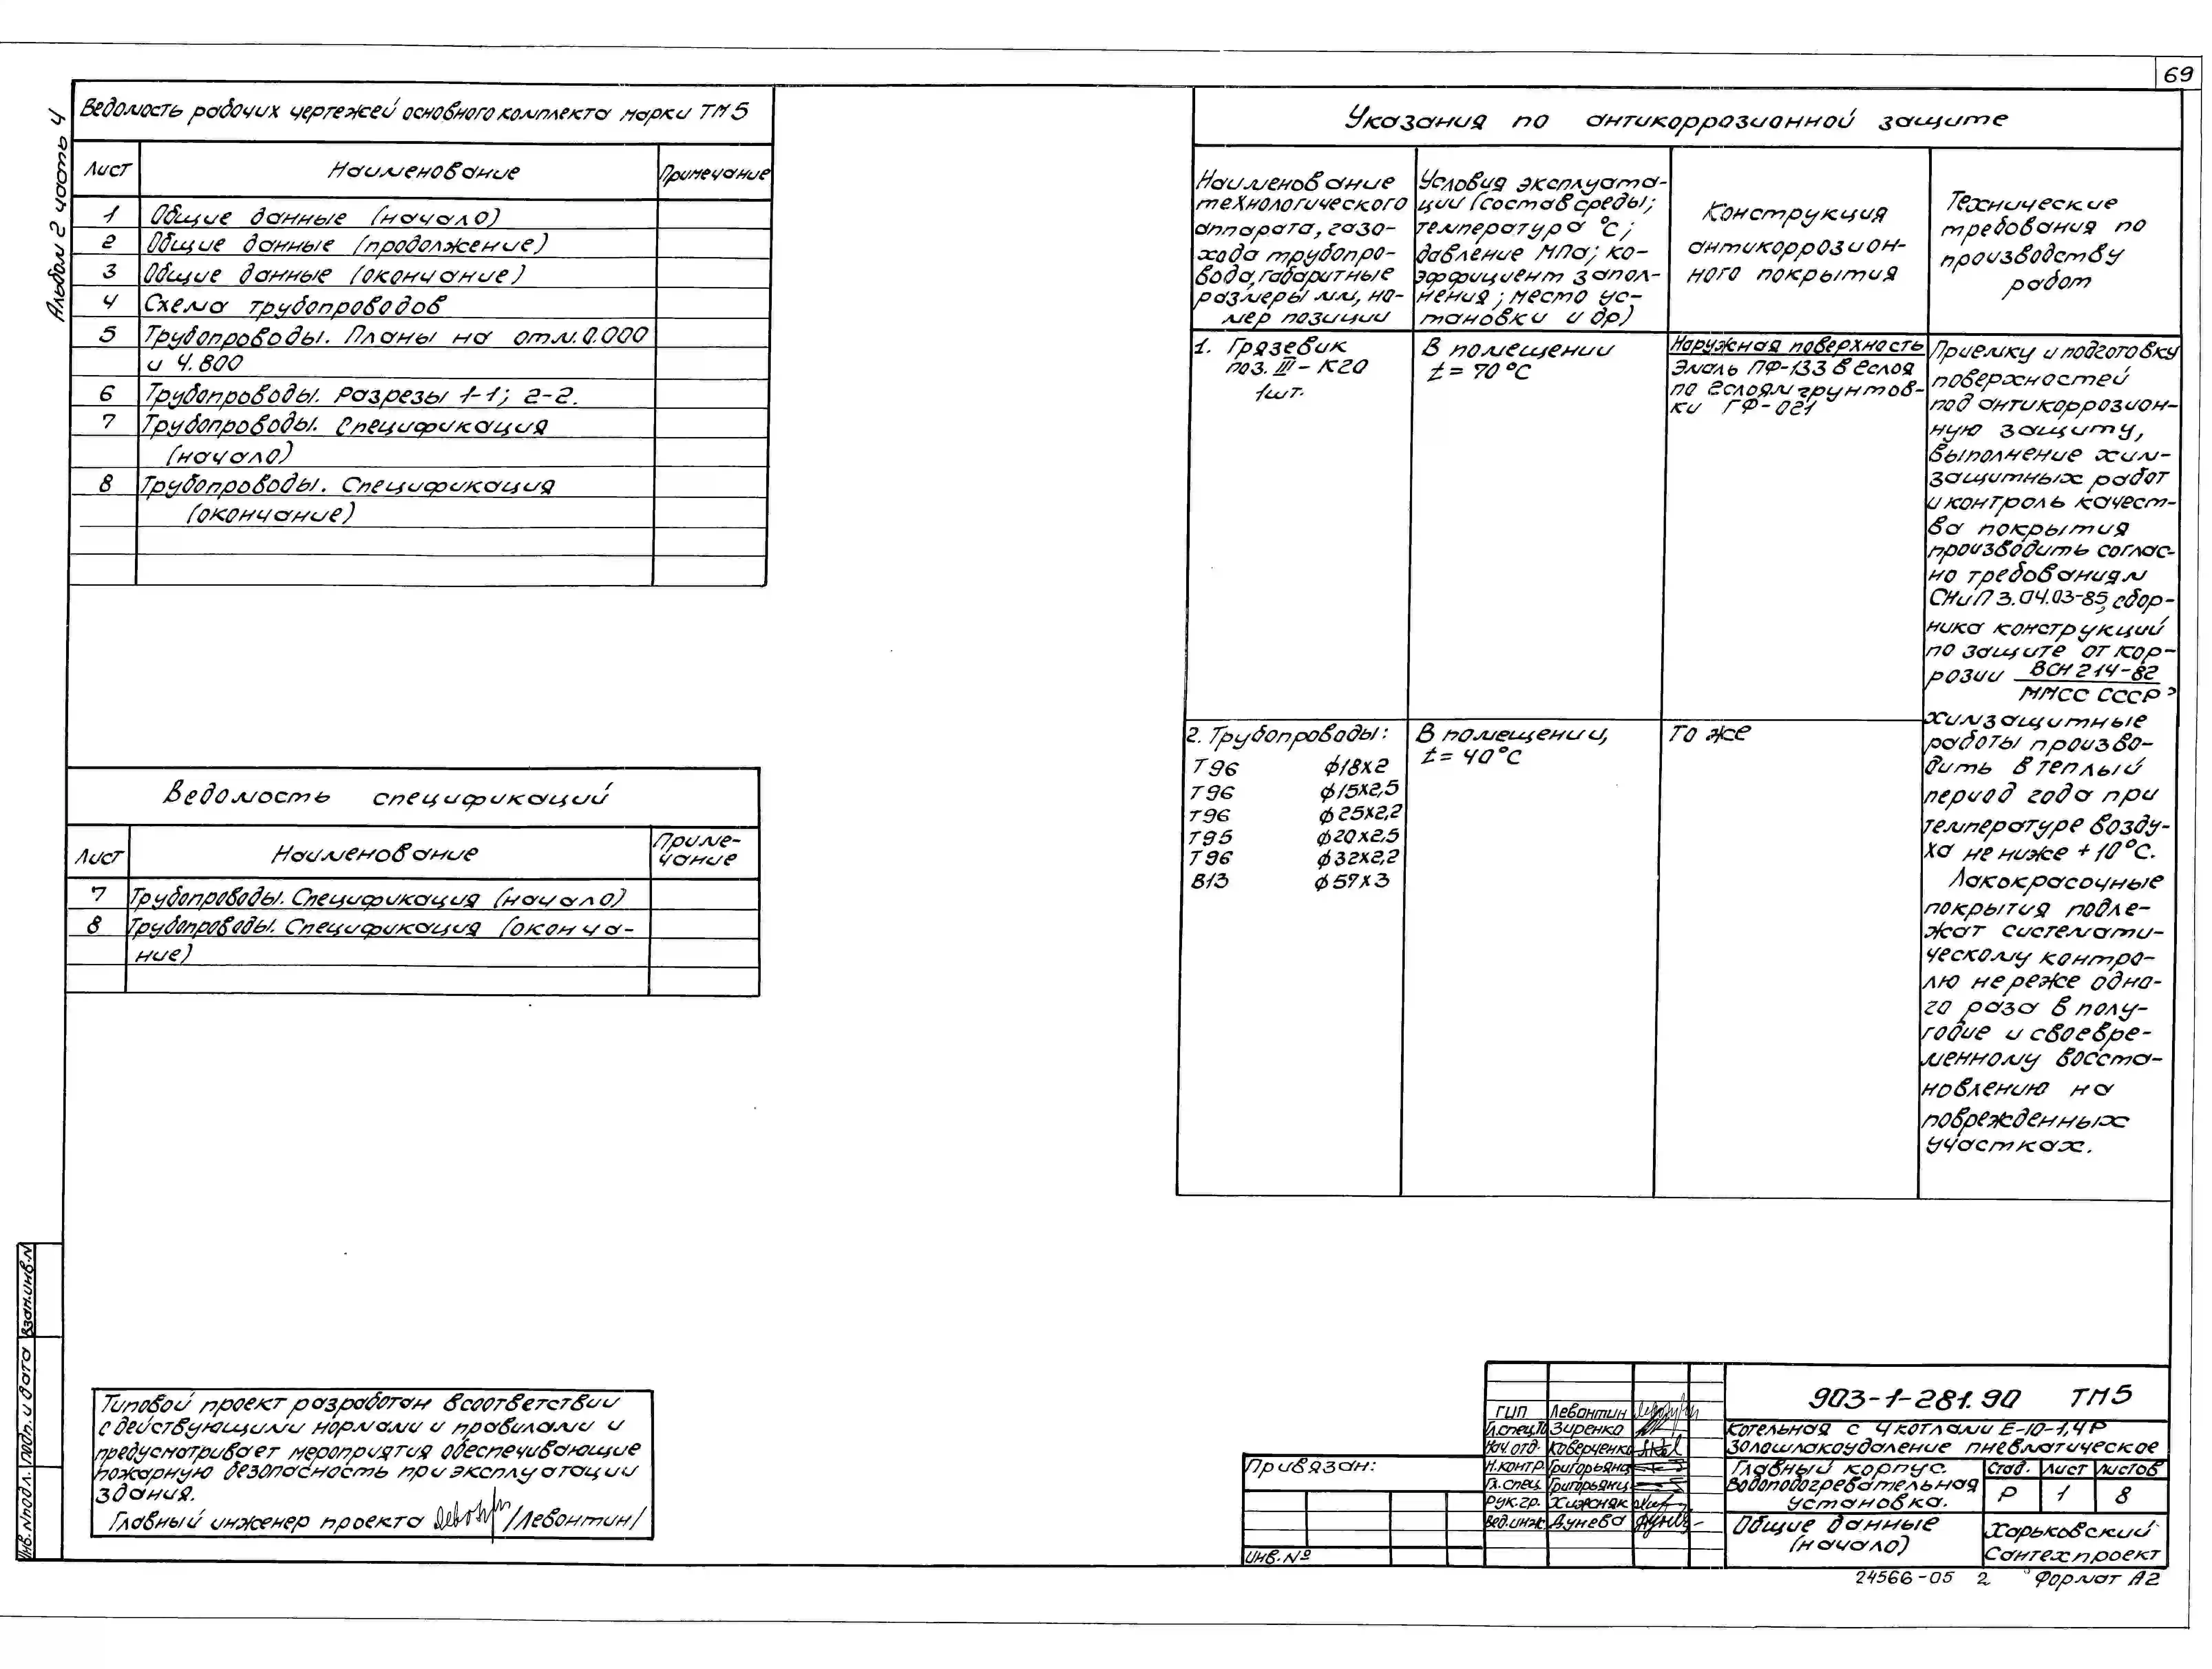 69
Альбом 2 часть 4
Ведомость рабочих чертежей основного комплекта марки ТМ5
Лист Наименование Примечание
1 Общие данные (начало)
2 Общие данные (продолжение)
3 Общие данные (окончание)
4 Схема трубопроводов
5 Трубопроводы. Планы на отм. 0.000
и 4.800
6 Трубопроводы. Разрезы 1-1; 2-2.
7 Трубопроводы. Спецификация
(начало)
8 Трубопроводы. Спецификация
(окончание)
Ведомость спецификаций
Лист Наименование Приме-
чание
7 Трубопроводы. Спецификация (начало)
8 Трубопроводы. Спецификация (оконча-
ние)
Указания по антикоррозионной защите
Наименование
технологического
аппарата, газо-
хода трубопро-
вода, габаритные
размеры мм, но-
мер позиции
Условия эксплуата-
ции (состав среды;
температура °С;
давление МПа; ко-
эффициент запол-
нения; место ус-
тановки и др)
Конструкция
антикоррозион-
ного покрытия
Технические
требования по
производству
работ
1. Грязевик
поз. III-К20
1шт.
В помещении
t = 70°С
Наружная поверхность
Эмаль ПФ-133 в 2слоя
по 2слоям грунтов-
ки ГФ-021
Приемку и подготовку
поверхностей
под антикоррозион-
ную защиту,
выполнение хим-
защитных работ
и контроль качест-
ва покрытия
производить соглас-
но требованиям
СНиП 3.04.03-85, сбор-
ника конструкций
по защите от кор-
розии ВСН 214-82
ММСС СССР,
химзащитные
работы произво-
дить в теплый
период года при
температуре возду-
ха не ниже +10°С.
Лакокрасочные
покрытия подле-
жат системати-
ческому контро-
лю не реже одно-
го раза в полу-
годие и своевре-
менному восста-
новлению на
поврежденных
участках.
2. Трубопроводы:
Т96 ф18х2
Т96 ф15х2,5
Т96 ф25х2,2
Т95 ф20х2,5
Т96 ф32х2,2
В13 ф57х3
В помещении,
t = 40°С
То же
Типовой проект разработан в соответствии
с действующими нормами и правилами и
предусматривает мероприятия обеспечивающие
пожарную безопасность при эксплуатации
здания.
Главный инженер проекта /Левонтин/
Инв. №подл. Подп. и дата Взам.инв.№
Привязан:
Инв. №
ГИП Левонтин
Гл.спец.ТО Зиренко
Нач.отд. Коверченко
Н.контр. Григорьянц
Гл.спец. Григорьянц
Рук.гр. Хижняк
Вед.инж. Дунева
903-1-281.90 ТМ5
Котельная с 4 котлами Е-10-1,4Р
Золошлакоудаление пневматическое
Главный корпус.
Водоподогревательная
установка.
Стад. Лист Листов
Р 1 8
Общие данные
(начало)
Харьковский
Сантехпроект
24566-05 2 Формат А2